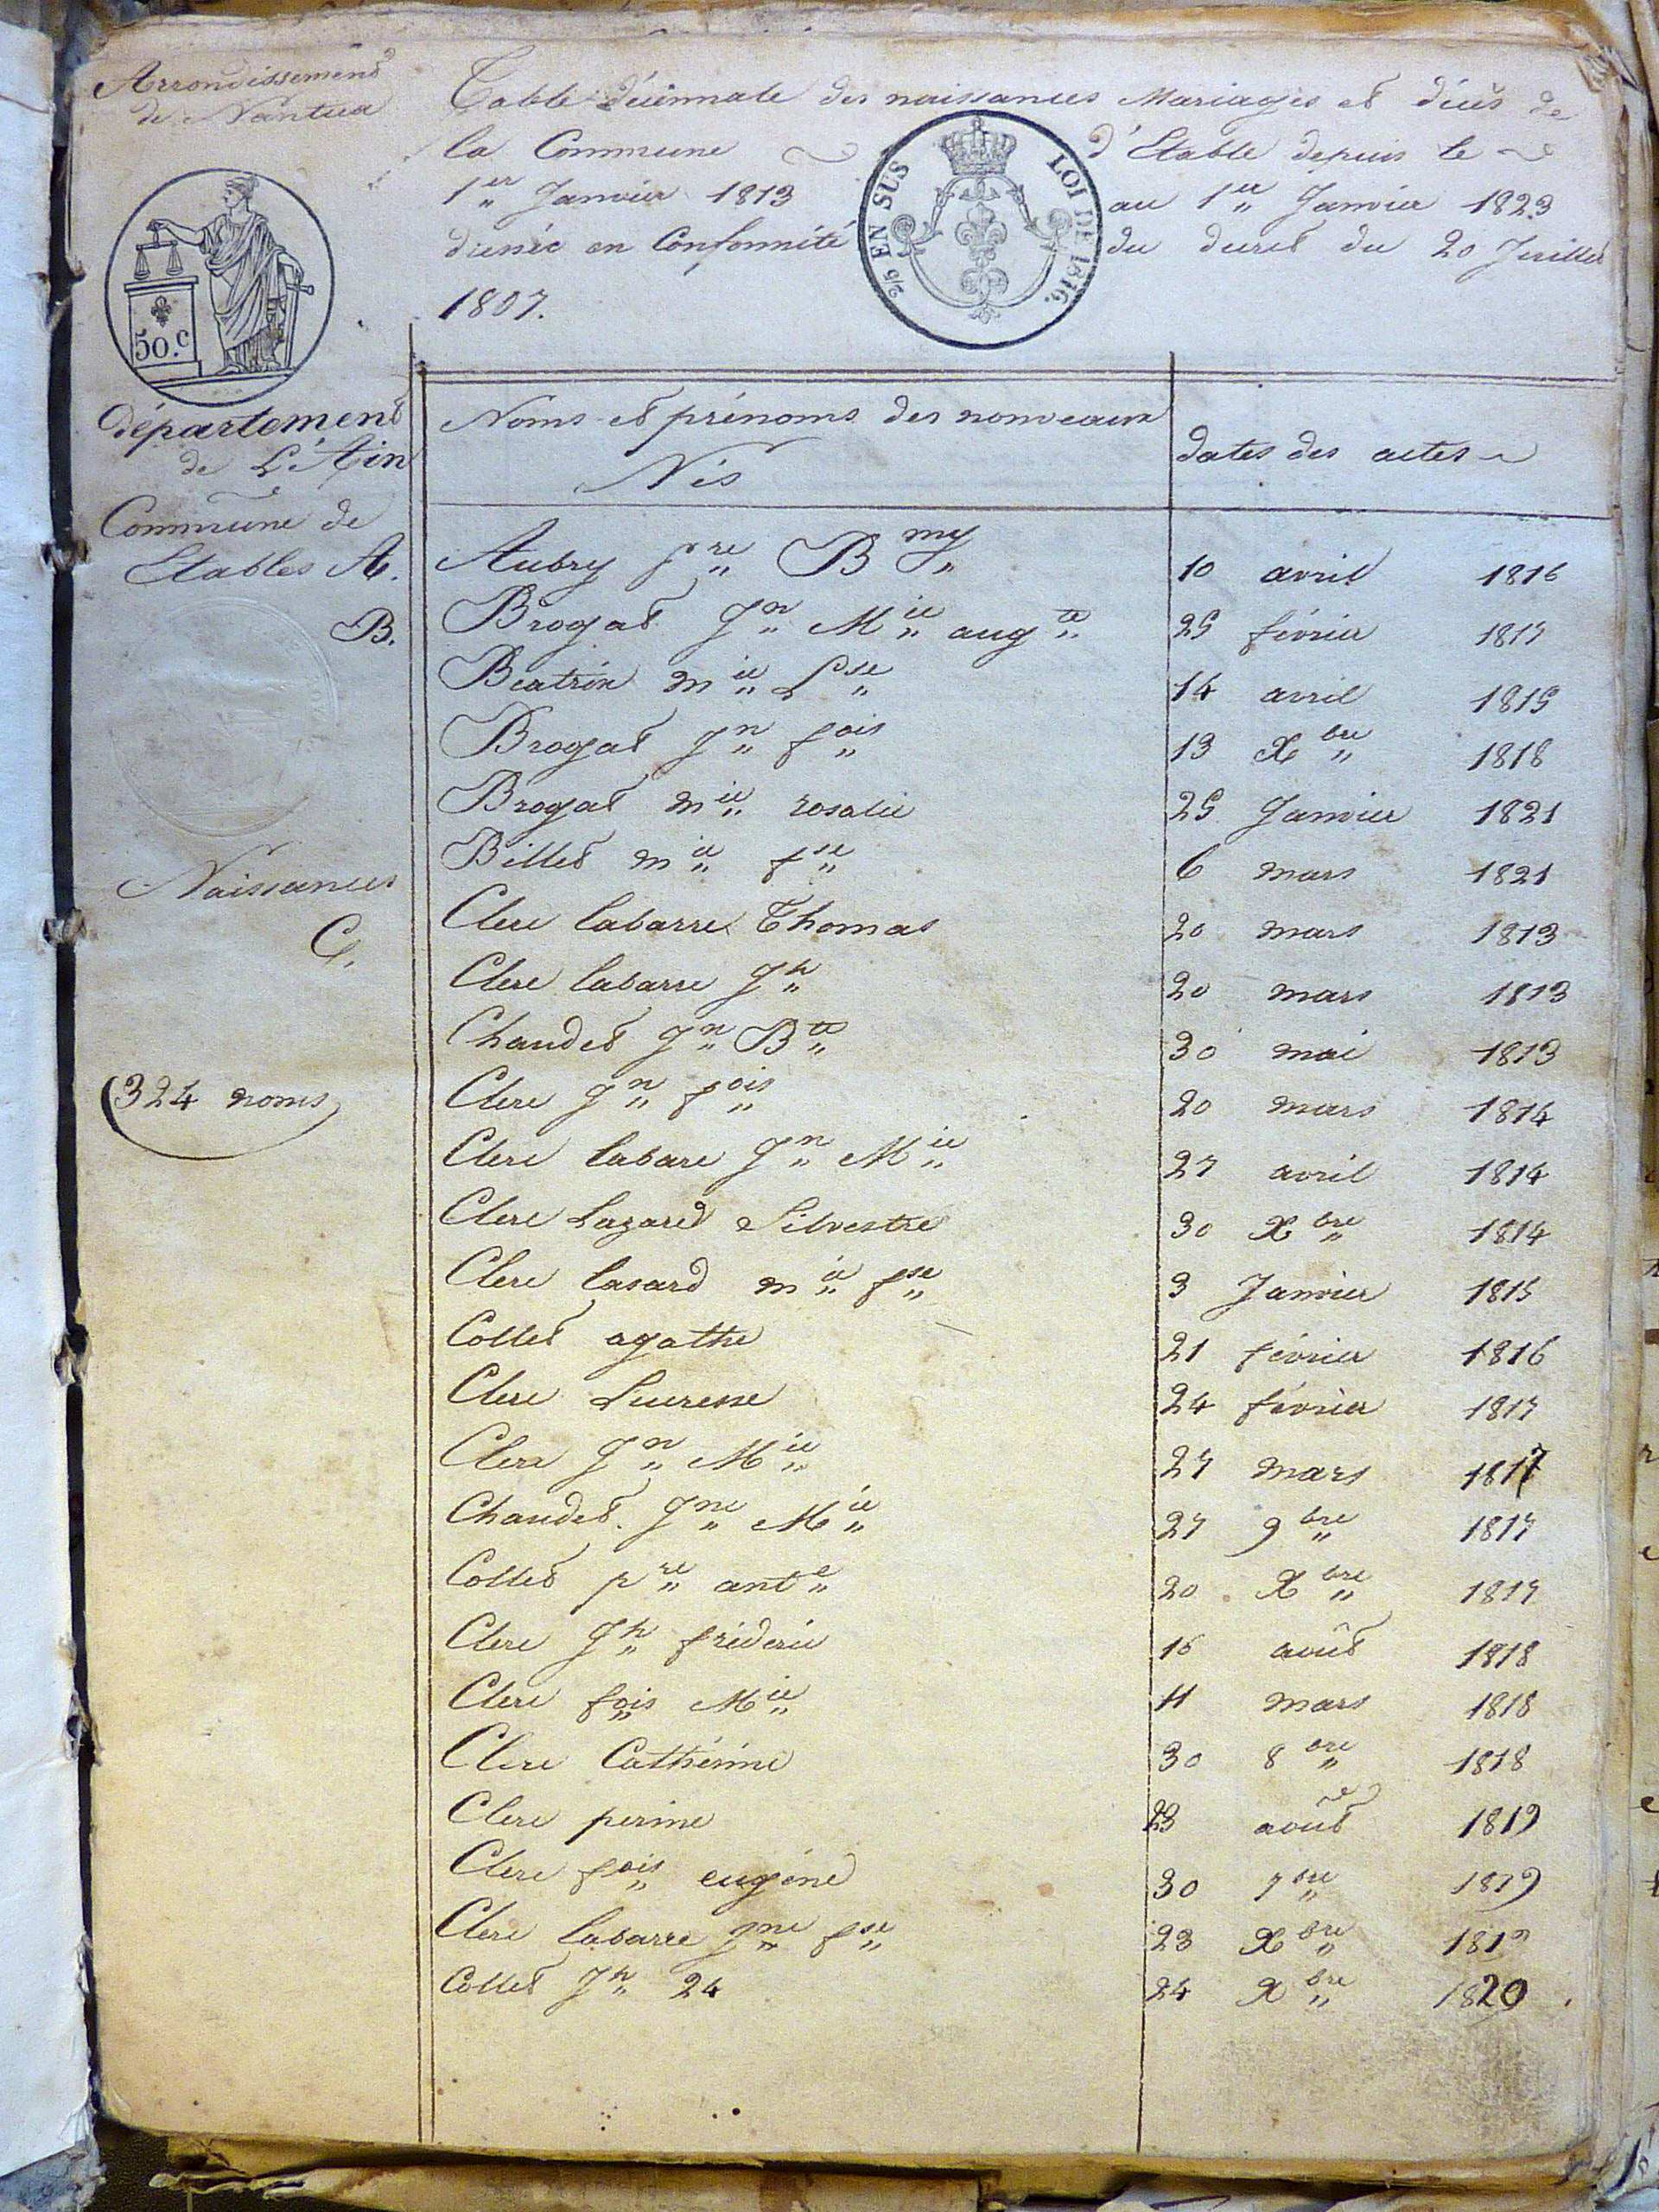 Arrondissement
de Nantua
Table décennale des naissances Mariages et décès de
la Commune d'Etable depuis le
1er Janvier 1813 au 1er Janvier 1823
dressée en Conformité du decret du 20 Juillet
1807.
2/5 EN SUS LOI DE 1816.
50.c
département
de L'Ain
Commune de
Etables A.
B.
Naissances
C.
(324 noms)
Noms et prénoms des nouveaux
Nés
dates des actes
Aubry pre Bmy 10 avril 1816
Brogat Jn Mie augte 25 février 1817
Beatrix mie Lse 14 avril 1815
Brogat Jn fois 13 Xbre 1818
Brogat mie rosalie 25 Janvier 1821
Billet mie fse 6 mars 1821
Clerc labarre Thomas 20 mars 1813
Clerc labarre Jh 20 mars 1813
Chaudet Jn Bte 30 mai 1813
Clerc Jn fois 20 mars 1814
Clerc labare Jn Mie 27 avril 1814
Clerc Lazard Silvestre 30 Xbre 1814
Clerc lasard mie fse 3 Janvier 1815
Collet agathe 21 février 1816
Clerc Lucresse 24 février 1817
Clerc Jn Mie 27 mars 1817
Chaudet Jne Mie 27 9bre 1817
Collet pre ante 20 Xbre 1817
Clerc Jh fréderic 15 août 1818
Clerc fois Mie 11 mars 1818
Clerc Cathérine 30 8bre 1818
Clerc perine 23 août 1819
Clerc fois eugéne 30 7bre 1819
Clerc labarre Jne fse 23 Xbre 1819
Collet Jh 24 24 Xbre 1820